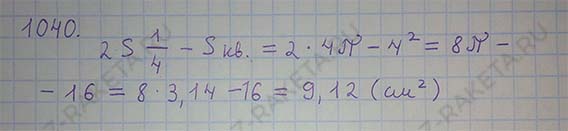 1040.
2 S 1/4 - S кв. = 2 · 4π - 4² = 8π -
- 16 = 8 · 3,14 - 16 = 9,12 (см²)
Z-RAKETA.RU